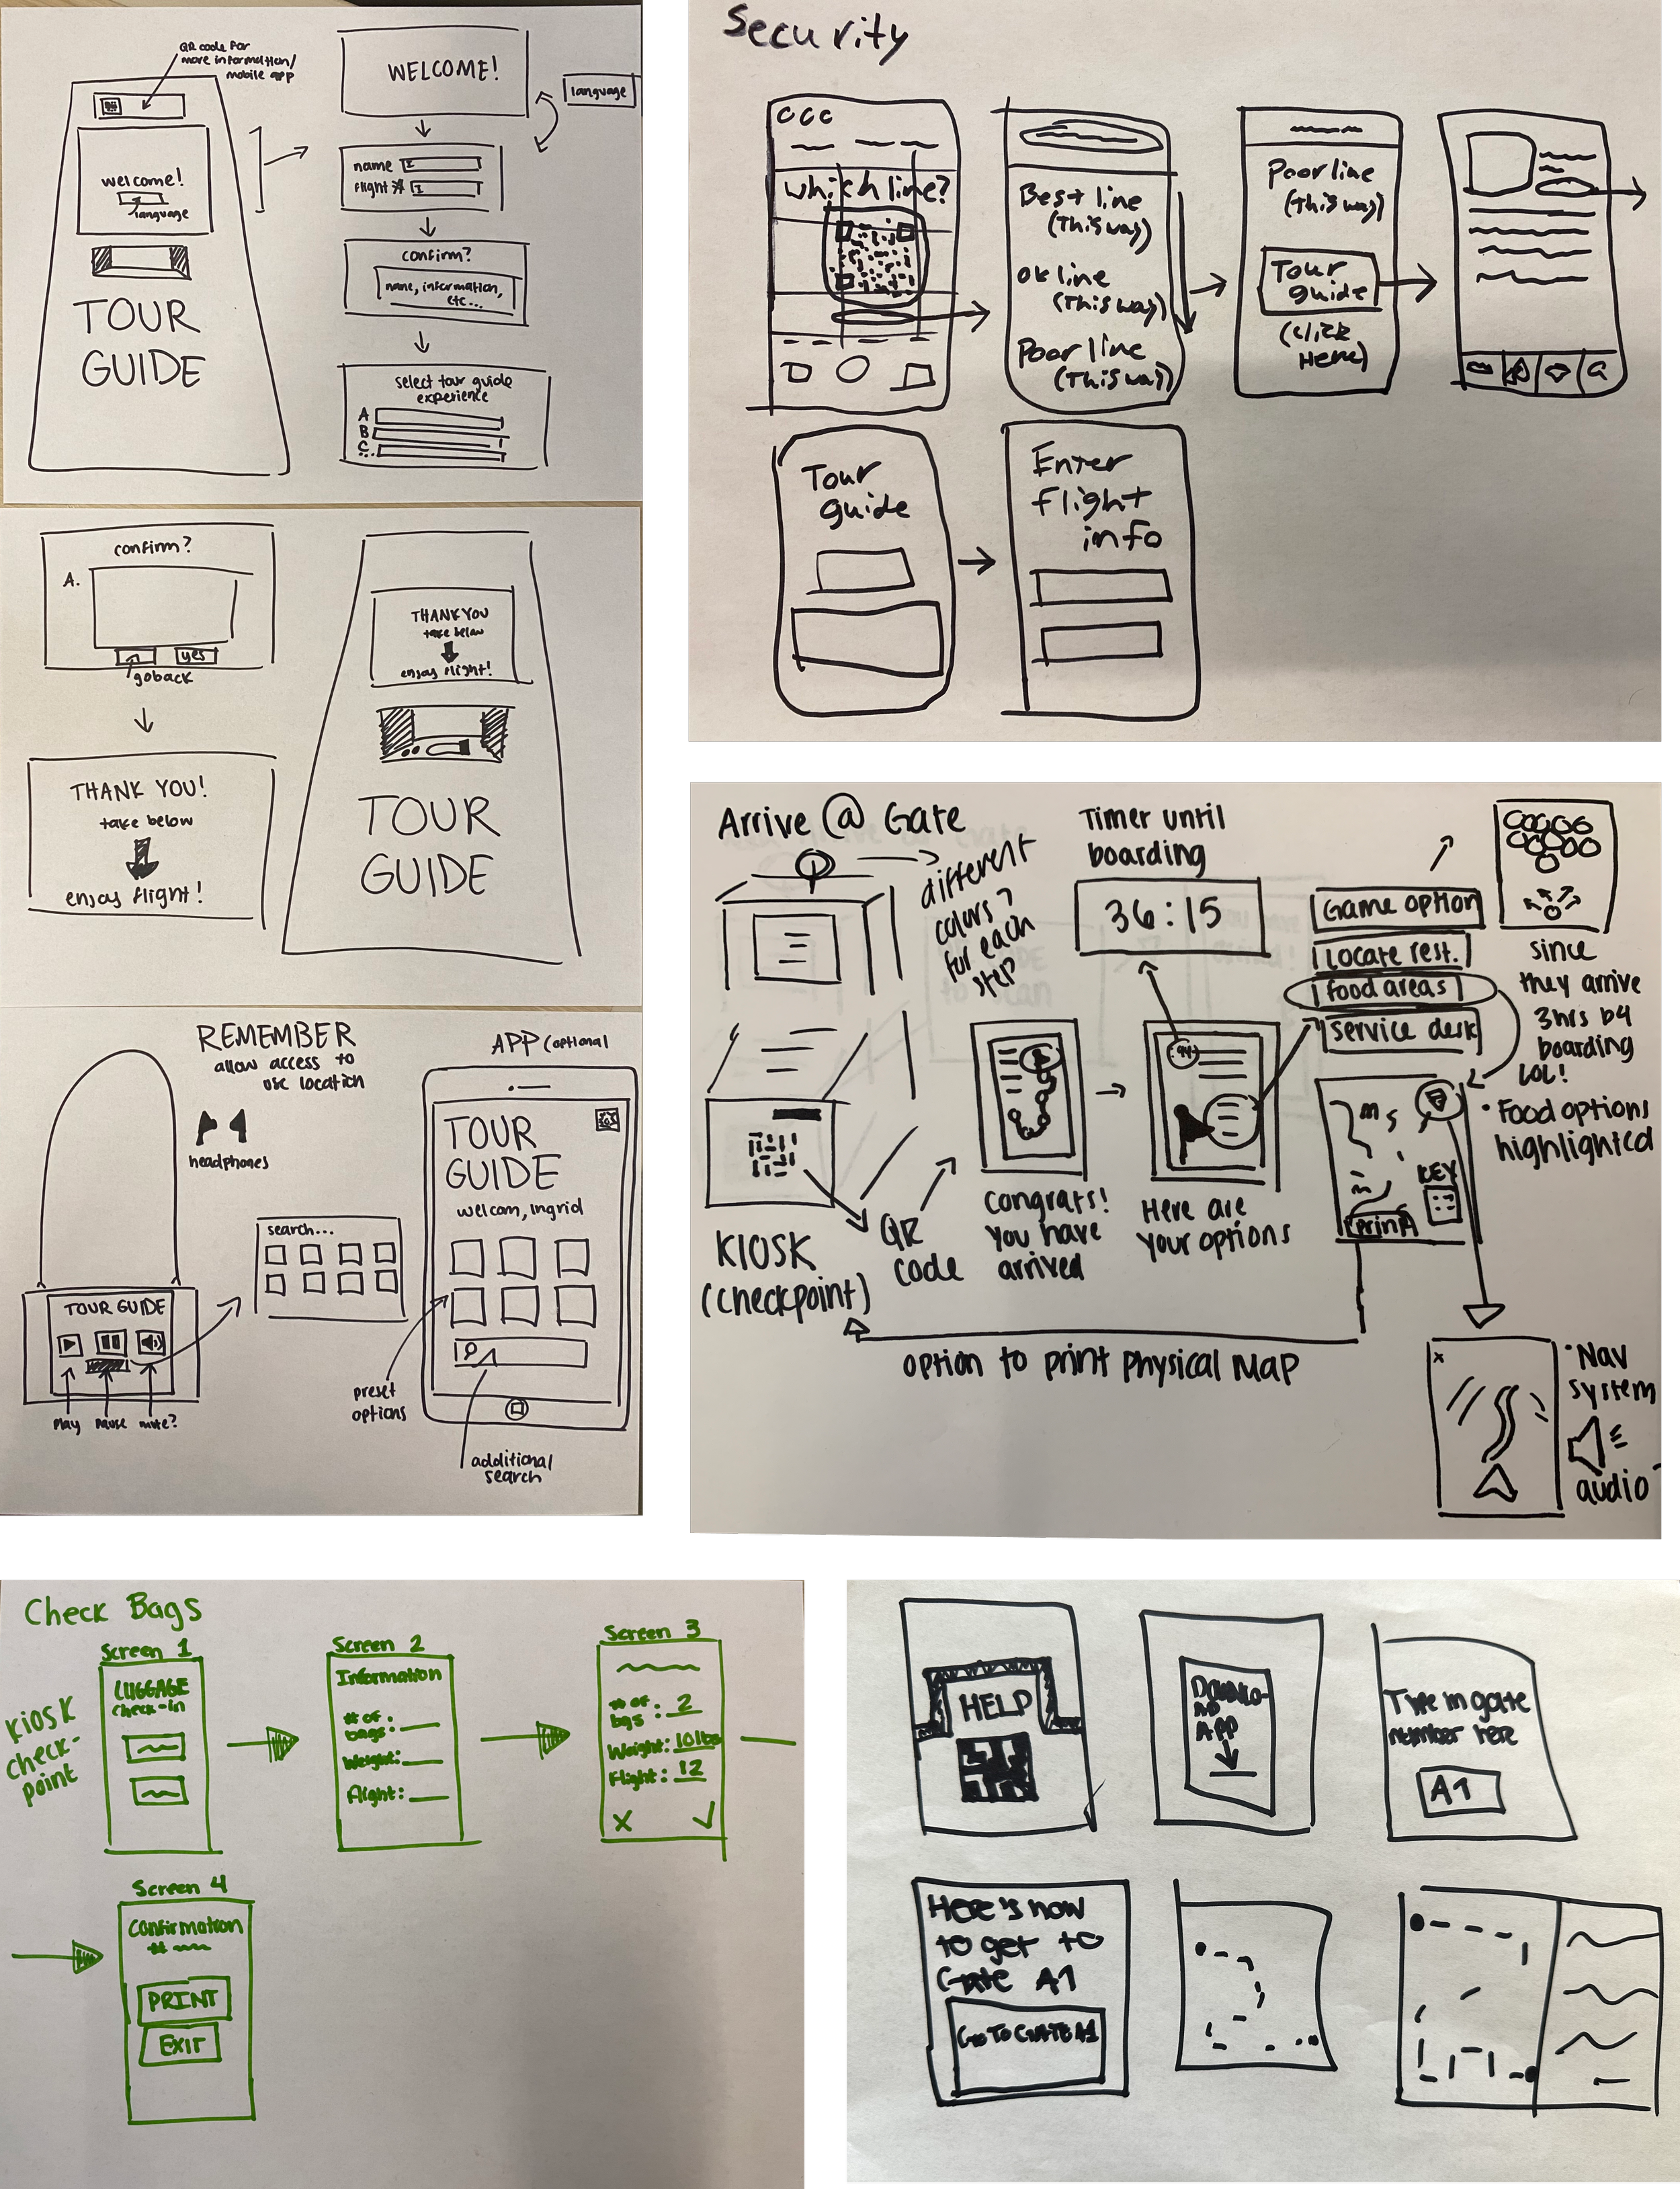 QR code for
more information/
mobile app
welcome!
language
TOUR
GUIDE
WELCOME!
language
name
flight #
confirm?
name, information,
etc...
select tour guide
experience
A
B
C
confirm?
A.
goback
yes
THANK YOU!
take below
enjoy flight!
THANK YOU
take below
enjoy flight!
TOUR
GUIDE
REMEMBER
allow access to
use location
headphones
TOUR GUIDE
Play
Pause
mute?
search...
APP (optional
TOUR
GUIDE
welcom, Ingrid
preset
options
additional
search
Security
which line?
Best line
(This way)
Ok line
(This way)
Poor line
(This way)
Poor line
(This way)
Tour
guide
(click
Here)
Tour
guide
Enter
flight
info
Arrive @ Gate
different
colors
for each
step
KIOSK
(checkpoint)
QR
code
congrats!
you have
arrived
Timer until
boarding
36:15
Here are
your options
Game option
Locate rest.
food areas
service desk
since
they arrive
3hrs b4
boarding
LOL!
• Food options
highlighted
KEY
print
option to print physical map
x
• Nav
system
audio
Check Bags
KIOSK
check-
point
Screen 1
LUGGAGE
check-in
Screen 2
Information
# of
bags:
Weight:
Flight:
Screen 3
# of
bgs : 2
Weight: 10lbs
Flight: 12
X
Screen 4
Confirmation
#
PRINT
EXIT
HELP
DOWNLO-
AD
APP
Type in gate
number here
A1
Here's how
to get to
Gate A1
GO TO GATE A1